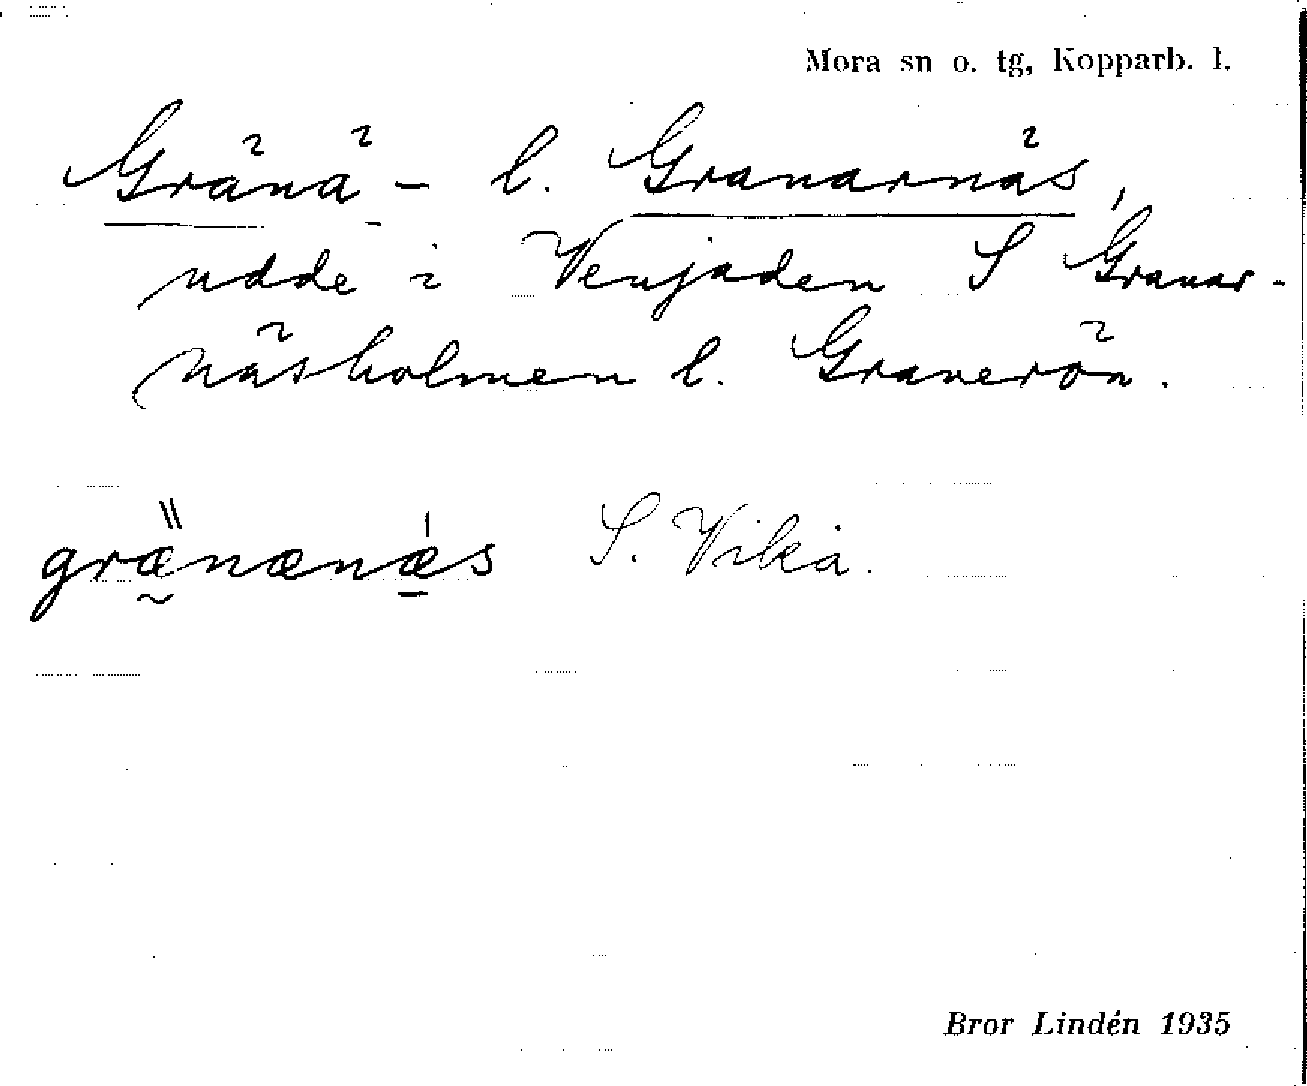 Mora sn o. tg, Kopparb. l.
Gränä- l. Granarnäs,
udde i Venjaden S Granar-
näsholmen l. Granerön.
grænænæs S. Vika.
Bror Lindén 1935